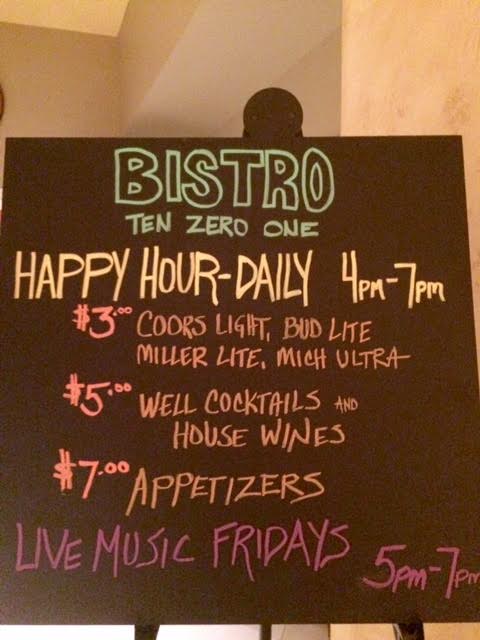 BISTRO
TEN ZERO ONE
HAPPY HOUR-DAILY 4pm-7pm
$3.00 COORS LIGHT, BUD LITE
MILLER LITE, MICH ULTRA
$5.00 WELL COCKTAILS AND
HOUSE WINES
$7.00 APPETIZERS
LIVE MUSIC FRIDAYS 5pm-7pm